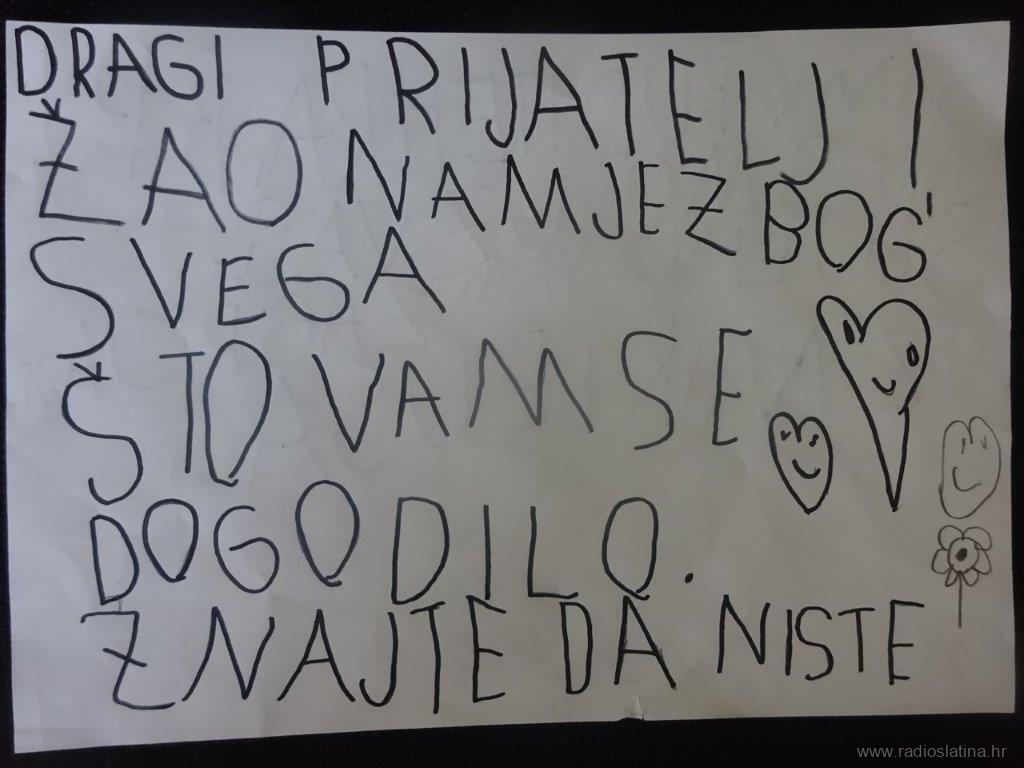 DRAGI PRIJATELJI
ŽAO NAM JE ZBOG
SVEGA
ŠTO VAM SE
DOGODILO.
ZNAJTE DA NISTE
www.radioslatina.hr